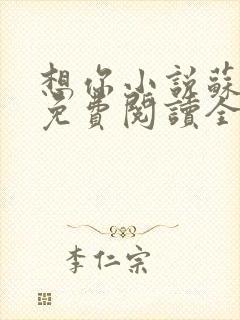 想你小说蘇
免費閱讀全
李仁宗